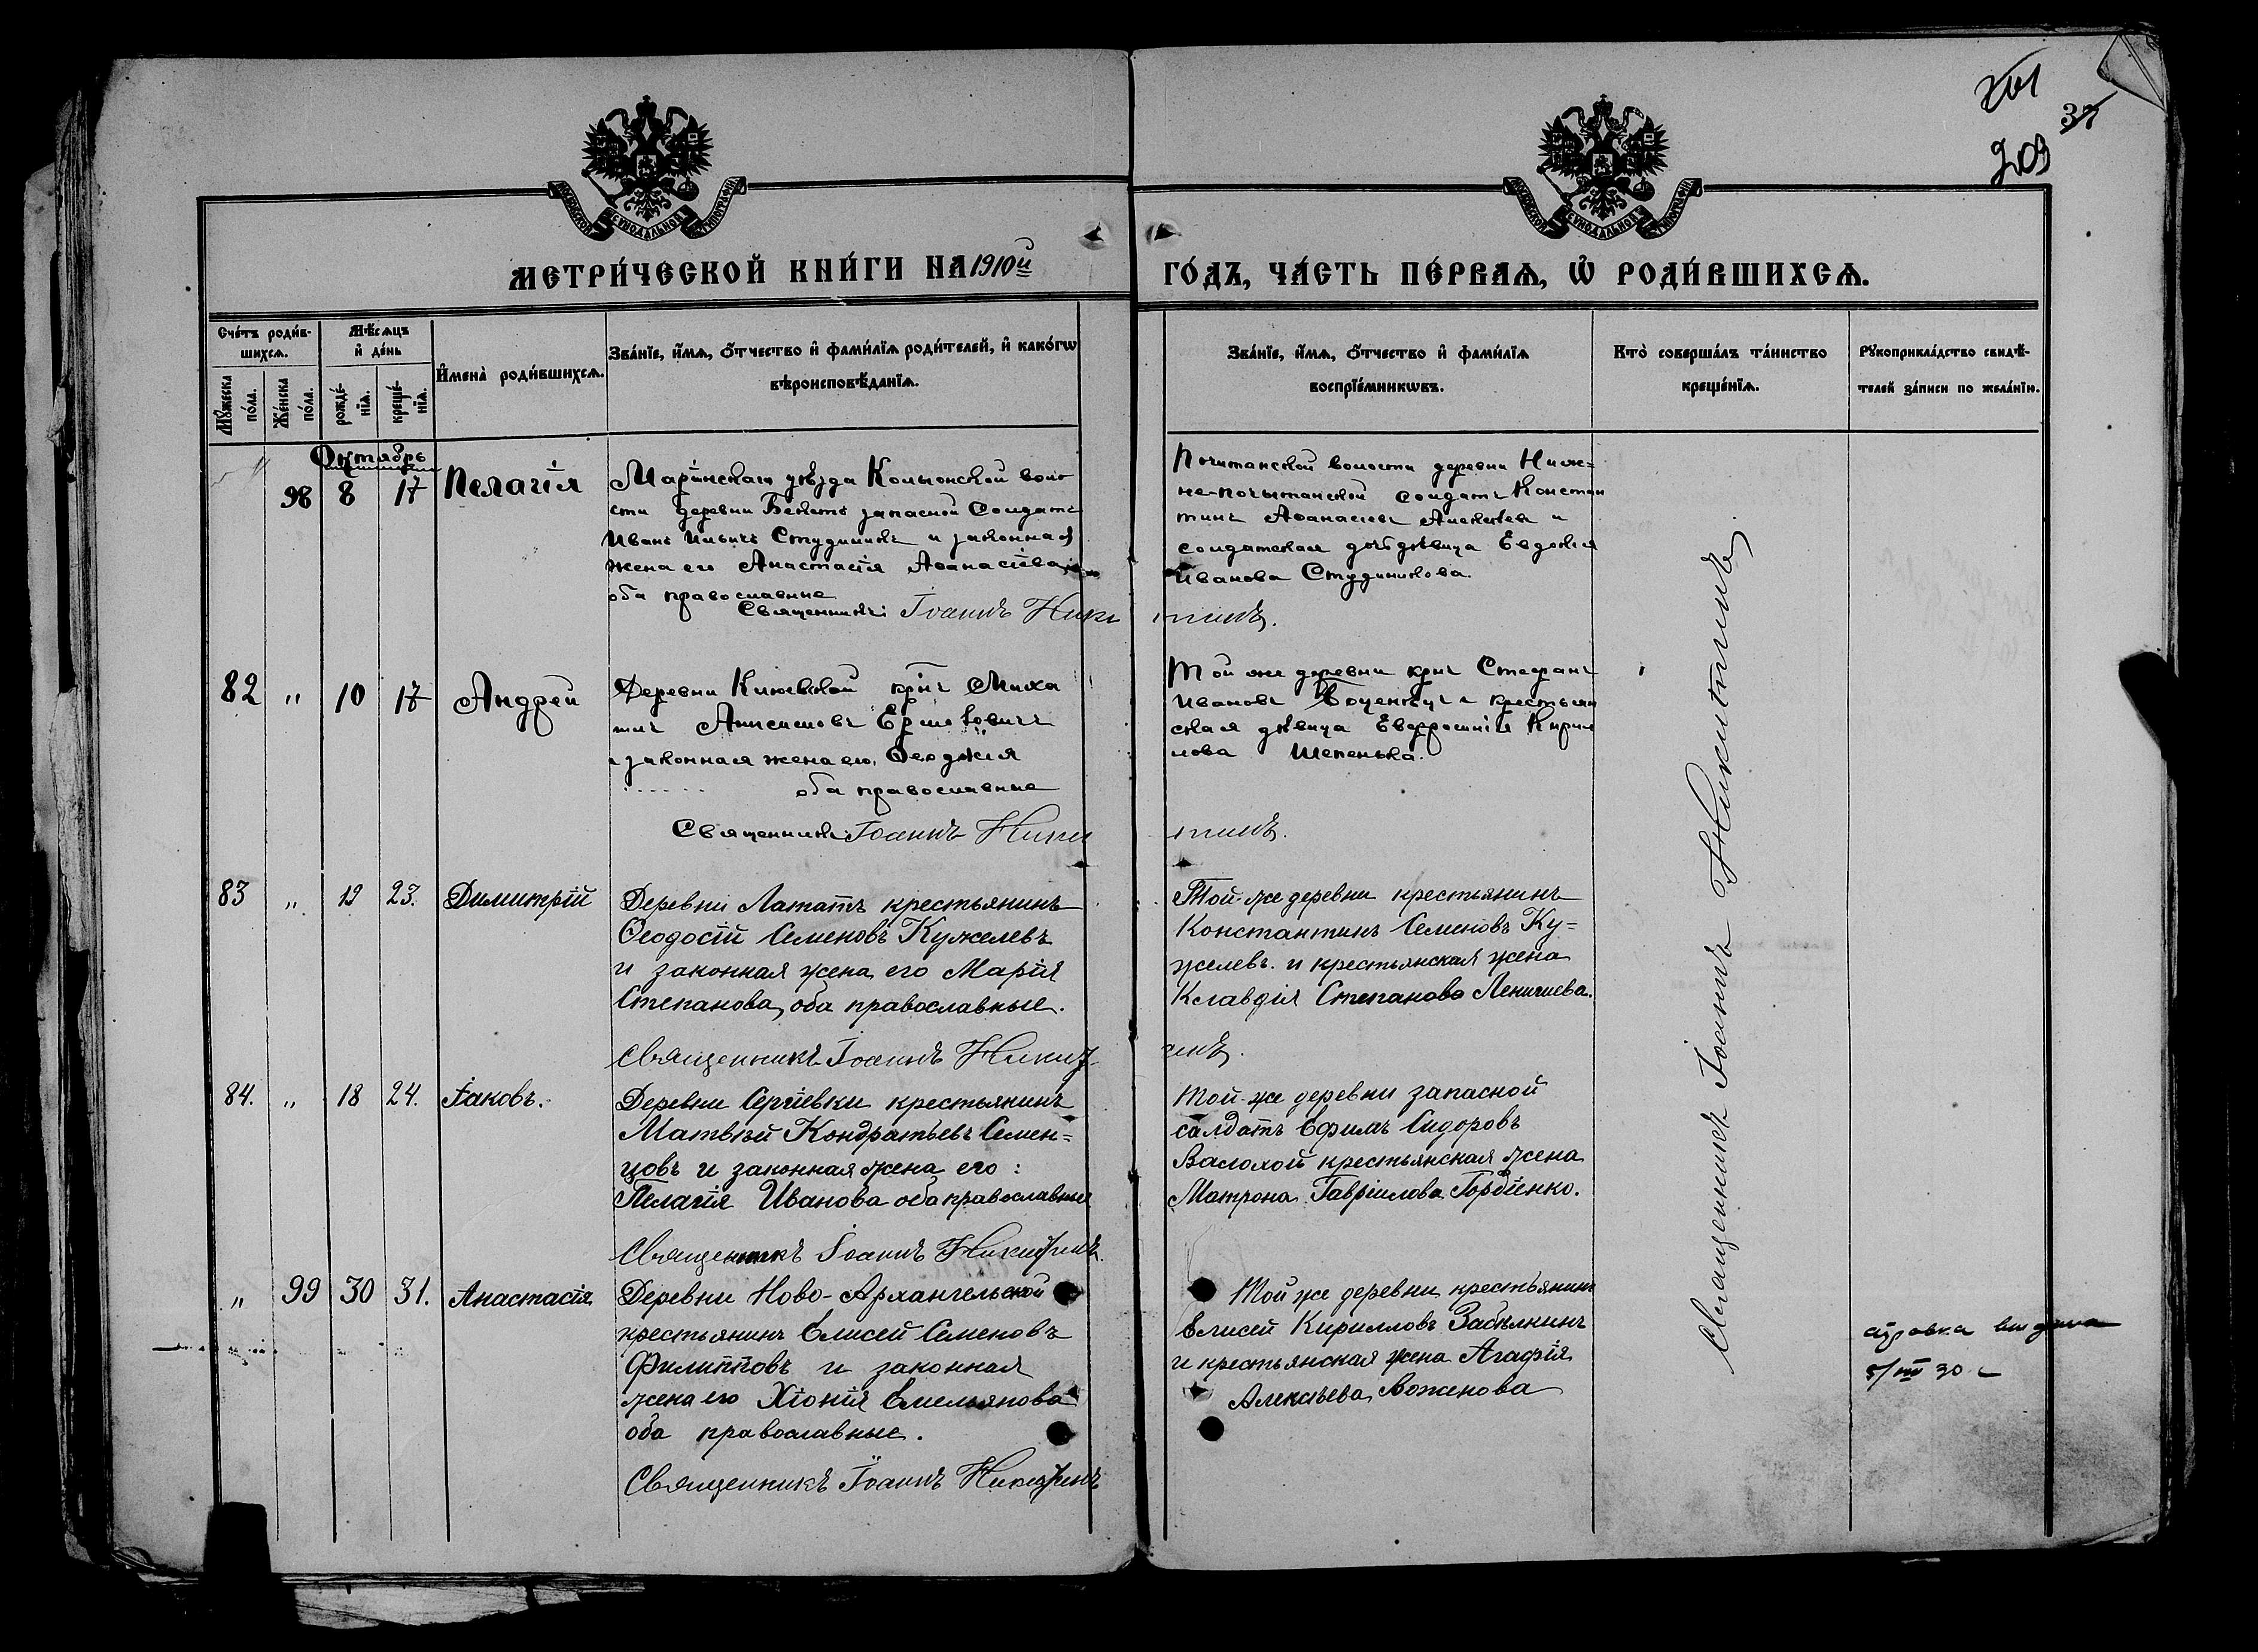 201
37
209
МОСКОВСКОЙ СѴНОДАЛЬНОЙ ТИПОГРАФІИ
МОСКОВСКОЙ СѴНОДАЛЬНОЙ ТИПОГРАФІИ
МЕТРИ́ЧЕСКОЙ КНИ́ГИ НА 1910й ГО́ДЪ, ЧА́СТЬ ПЕ́РВАѦ, Ѡ҆ РОДИ́ВШИХСѦ.
Сче́тъ роди́в-
шихсѧ.
Мꙋ́жеска по́ла.
Же́нска по́ла.
Мѣ́сѧцъ
и҆ де́нь
рожде́-
нїѧ.
креще́-
нїѧ.
И҆мена̀ роди́вшихсѧ.
Зва́нїе, и҆́мѧ, ѻ҆́тчество и҆ фами́лїѧ роди́телей, и҆ како́гѡ
вѣроисповѣ́данїѧ.
Зва́нїе, и҆́мѧ, ѻ҆́тчество и҆ фами́лїѧ
воспрїе́мникѡвъ.
Кто̀ соверша́лъ та́инство
креще́нїѧ.
Рꙋкоприкла́дство свидѣ́-
телей за́писи по жела́нїю.
Октябрь
98 8 17 Пелагія
Маріинскаго уѣзда Колыонской воло
сти деревни Бекетъ запасной Солдатъ
Иванъ Ильичъ Студиникъ и законная
жена его Анастасія Аѳанасіева,
оба православные
Священникъ: Іоаннъ Никитинъ.
Почитанской волости деревни Ниж=
не-почитанской солдатъ Констан
тинъ Аѳанасіевъ и
солдатская дочь дѣвица Евдокія
Иванова Студиникова.
82 „ 10 17 Андрей
Деревни Кіевской кр-нъ Миха
илъ Анисимовъ
и законная жена его, Ѳеодосія
оба православные
Священникъ Іоаннъ Никитинъ.
Той же деревни кр-нъ Стефанъ
Ивановъ и крестьян
ская дѣвица Евфросинія Кирил
лова Шепенька.
83 „ 19 23. Димитрій
Деревни Лататъ крестьянинъ
Ѳеодосій Семеновъ Кужелевъ
и законная жена его Марія
Степанова, оба православные.
Священникъ Іоаннъ Никитинъ.
Той-же деревни крестьянинъ
Константинъ Семеновъ Ку=
желевъ. и крестьянская жена
Клавдія Степанова
84. „ 18 24. Іаковъ.
Деревни Сергіевки крестьянинъ
Матвѣй Кондратьевъ Семен=
цовъ и законная жена его:
Пелагія Иванова оба православные
Священникъ Іоаннъ Никитинъ.
Той-же деревни запасной
салдатъ Ефимъ Сидоровъ
Валохой крестьянская жена
Матрона Гавріилова Гордіенко.
„ 99 30 31. Анастасія
Деревни Ново-Архангельской
крестьянинъ Елисей Семеновъ
Филипповъ и законная
жена его Хіонія Емельянова
оба православные.
Священникъ Іоаннъ Никитинъ
Той же деревни крестьянинъ
Елисей Кирилловъ Забѣлкинъ
и крестьянская жена Агафія
Алексѣева Воженова
Священникъ Іоаннъ Никитинъ
справка выдана
5/III 30 г